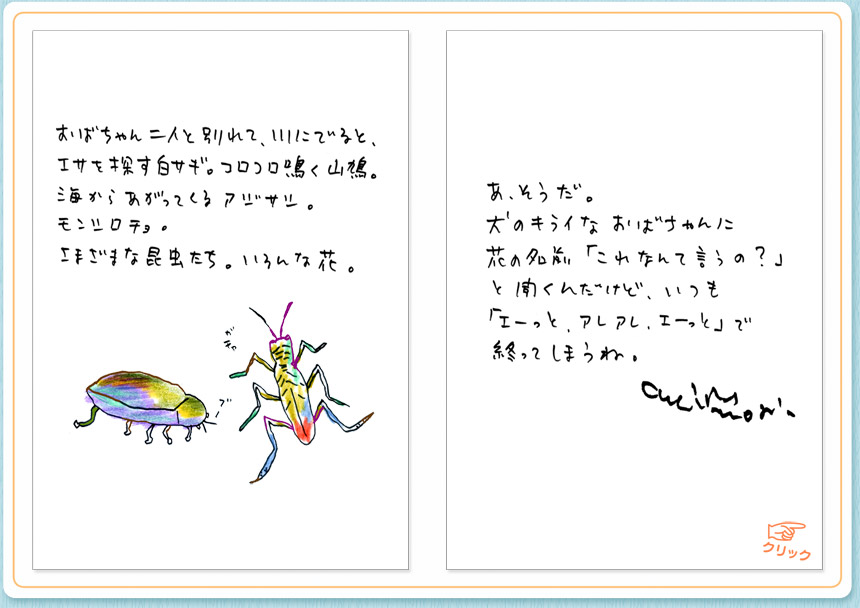 おばちゃん二人と別れて、川にでると、
エサを探す白サギ。コロコロ鳴く山鳩。
海からあがってくるアジサシ。
モンシロチョ。
さまざまな昆虫たち。いろんな花。
ガチャ
ブ
あ、そうだ。
犬のキライなおばちゃんに
花の名前「これなんて言うの？」
と聞くんだけど、いつも
「エーっと、アレアレ、エーっと」で
終ってしまうね。
クリック